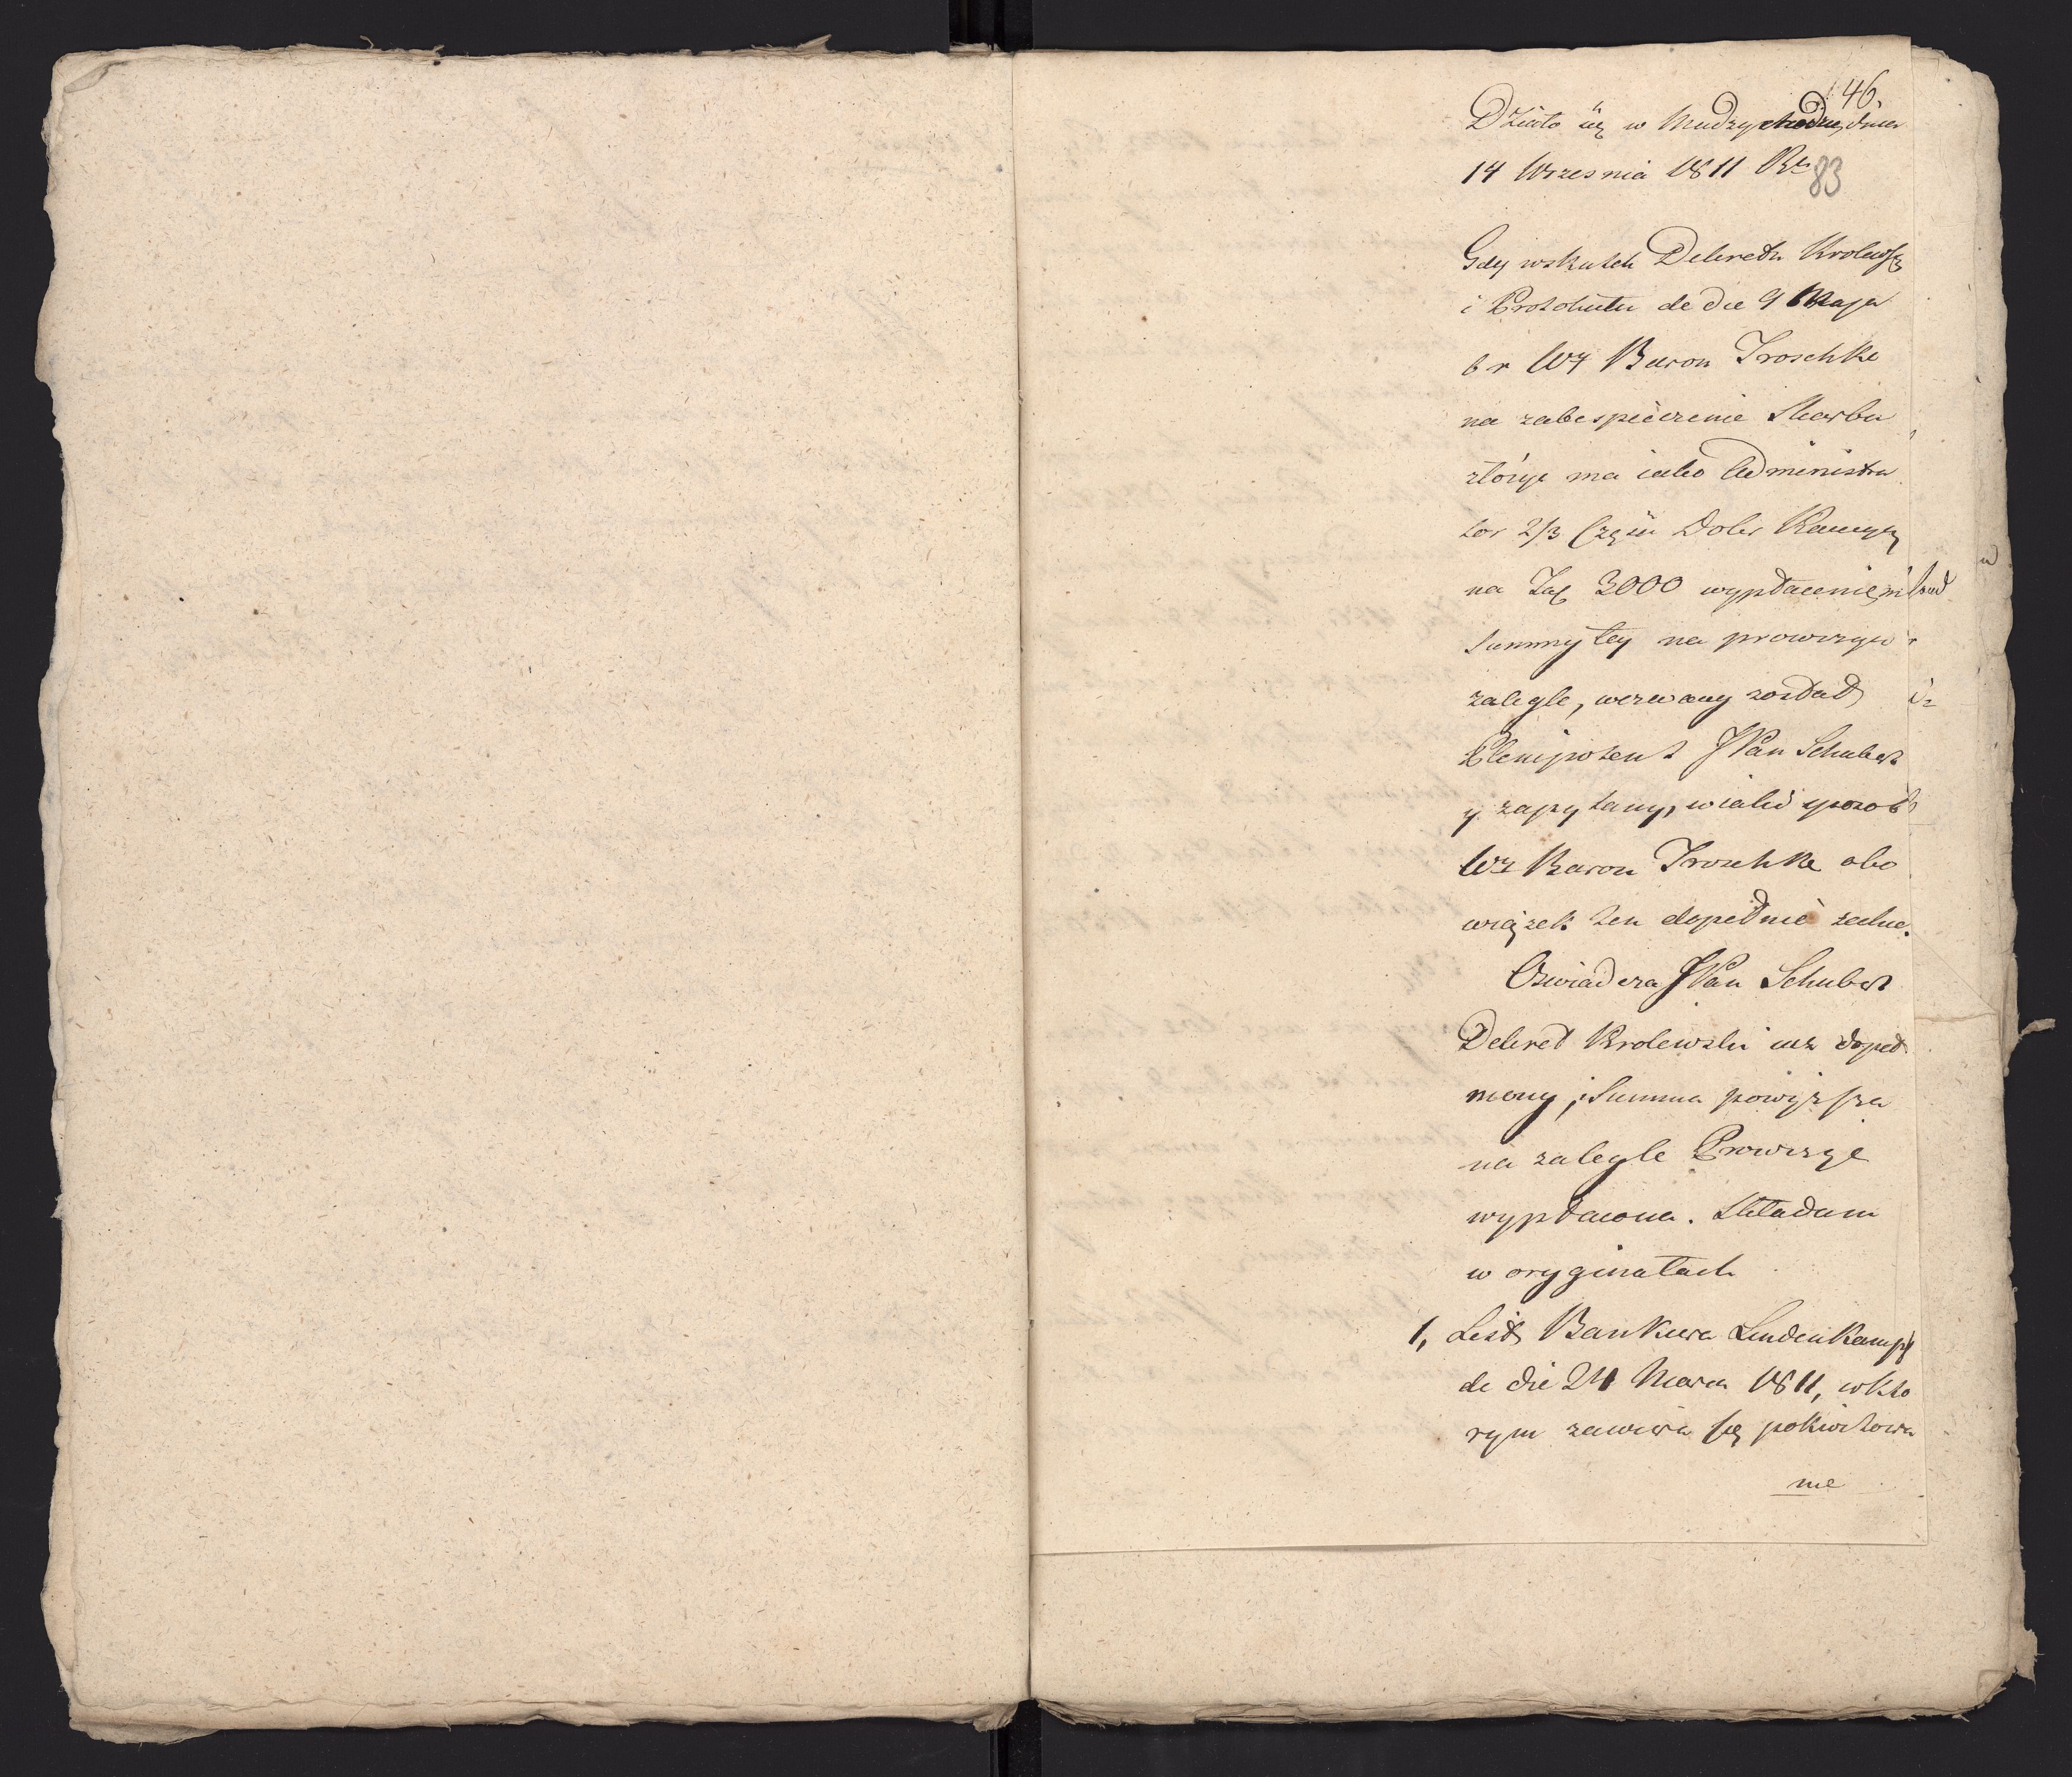 146.
Działo się w Międzychodzie dnia
14 Wrzesnia 1811 Rs
83
Gdy wskutek Dekretu Krolewsk
i Protokułu de die 9 Maja
b r Wz Baron Troschke
na zabespieczenie Skarbu
złożyć ma iako Administra
tor 2/3 Części Dobr Kamyą
na Tal 3000 wypłacenie
Summy tey na prowizye
zaległe, wezwany został
Plenipotent JPan Schubert
y zapytany, w iaki sposob
Wz Baron Troschke obo
wiązek ten dopełnić zechce.
Oswiadcza JPan Schubert
Dekret Krolewski iuz dopeł
niony, i Summa powyższa
na zaległe Prowizye
wypłacona. Składam
w oryginałach
1, List Bankiera Lindenkampf
de die 24 Marca 1811, w kto
rym zawiera się pokwitowa
nie